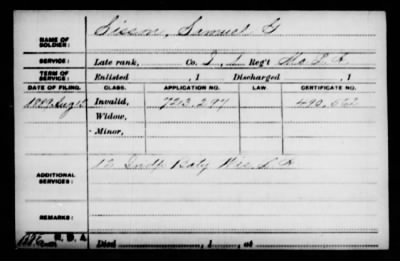 NAME OF SOLDIER: Sisson, Samuel G
SERVICE: Late rank, Co. I, 1 Reg't Mo. L. A.
TERM OF SERVICE: Enlisted , 1 Discharged , 1
DATE OF FILING. CLASS. APPLICATION NO. LAW. CERTIFICATE NO.
1889 Aug 12 Invalid, 723,297 490,662
Widow,
Minor,
ADDITIONAL SERVICES: 12 Indp Baty Wis. L. A.
REMARKS:
Died , 1 , at